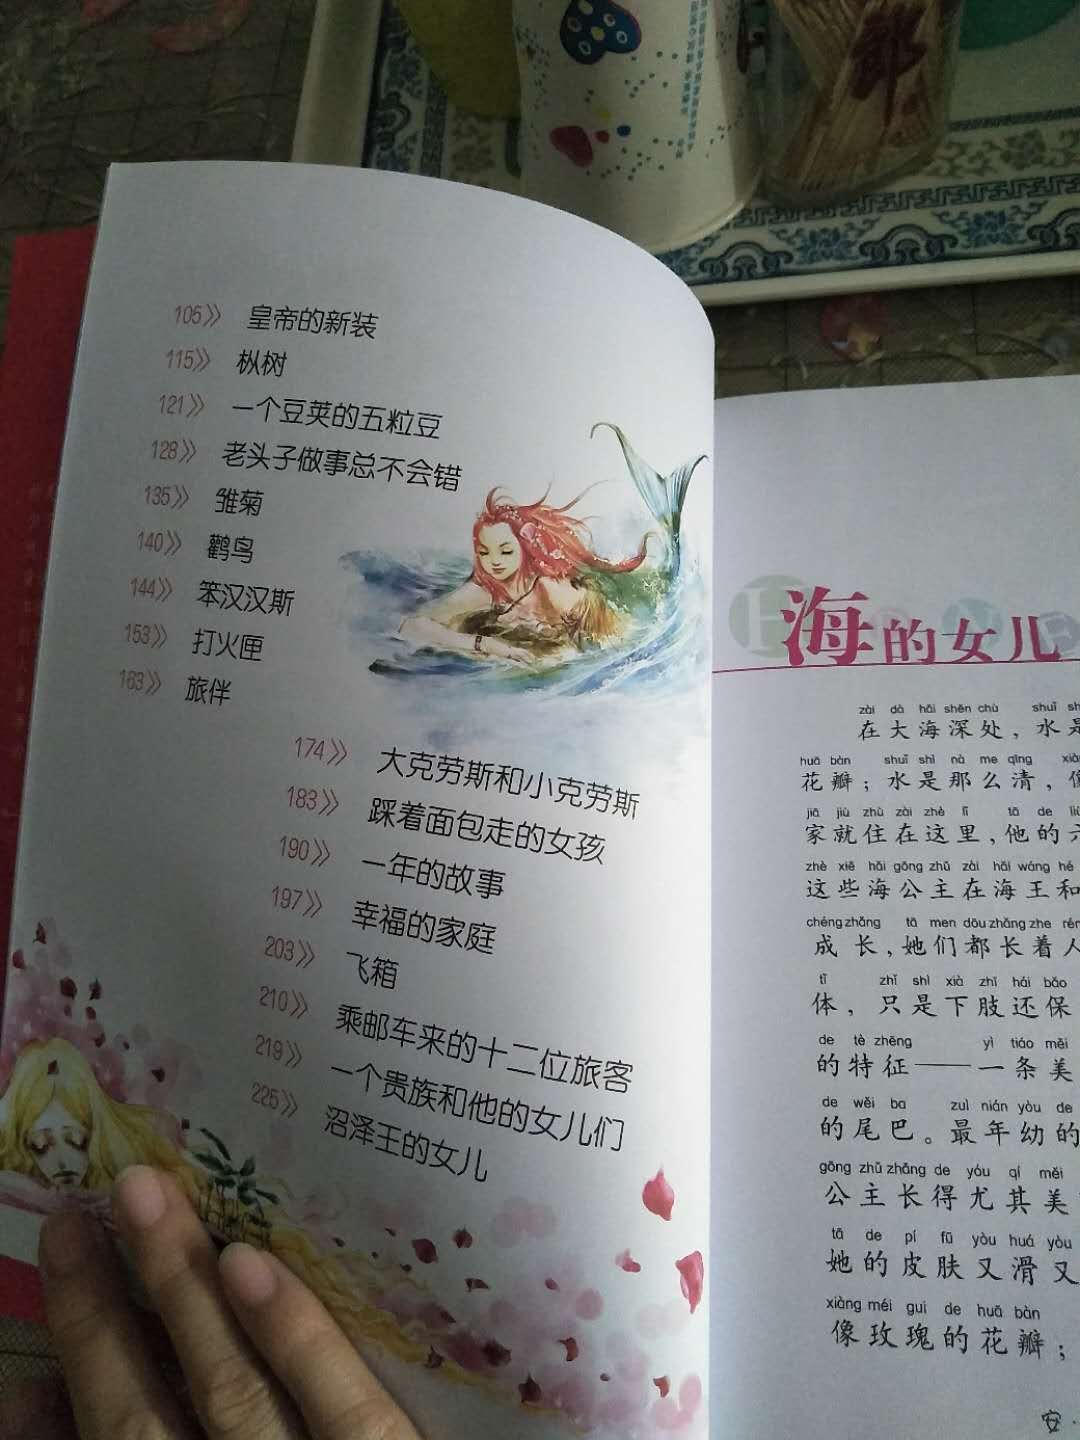 105》 皇帝的新装
115》 枞树
121》 一个豆荚的五粒豆
128》 老头子做事总不会错
135》 雏菊
140》 鹳鸟
144》 笨汉汉斯
153》 打火匣
163》 旅伴
174》 大克劳斯和小克劳斯
183》 踩着面包走的女孩
190》 一年的故事
197》 幸福的家庭
203》 飞箱
210》 乘邮车来的十二位旅客
219》 一个贵族和他的女儿们
225》 沼泽王的女儿
海的女儿
zài dà hǎi shēn chù shuǐ
在大海深处，水是
huā bàn shuǐ shì nà me qīng
花瓣；水是那么清，
jiā jiù zhù zài zhè lǐ tā de
家就住在这里，他的
zhè xiē hǎi gōng zhǔ zài hǎi wáng hé
这些海公主在海王和
chéng zhǎng tā men dōu zhǎng zhe
成长，她们都长着人
tǐ zhǐ shì xià zhī hái bǎo
体，只是下肢还保
de tè zhēng yì tiáo měi
的特征——一条美
de wěi ba zuì nián yòu de
的尾巴。最年幼的
gōng zhǔ zhǎng de yóu qí měi
公主长得尤其美
tā de pí fū yòu huá yòu
她的皮肤又滑又
xiàng méi gui de huā bàn
像玫瑰的花瓣；
安·